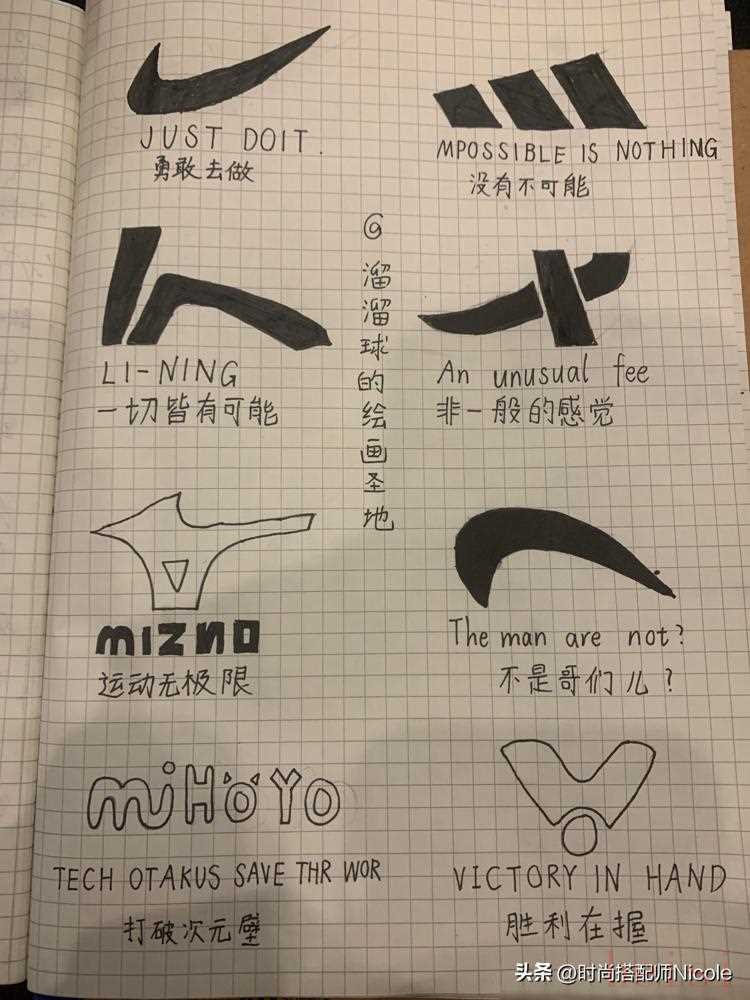 JUST DOIT.
勇敢去做
MPOSSIBLE IS NOTHING
没有不可能
@溜溜球的绘画圣地
LI-NING
一切皆有可能
An unusual fee
非一般的感觉
mIZNO
运动无极限
The man are not?
不是哥们儿?
miHoYo
TECH OTAKUS SAVE THR WOR
打破次元壁
VICTORY IN HAND
胜利在握
头条 @时尚搭配师Nicole